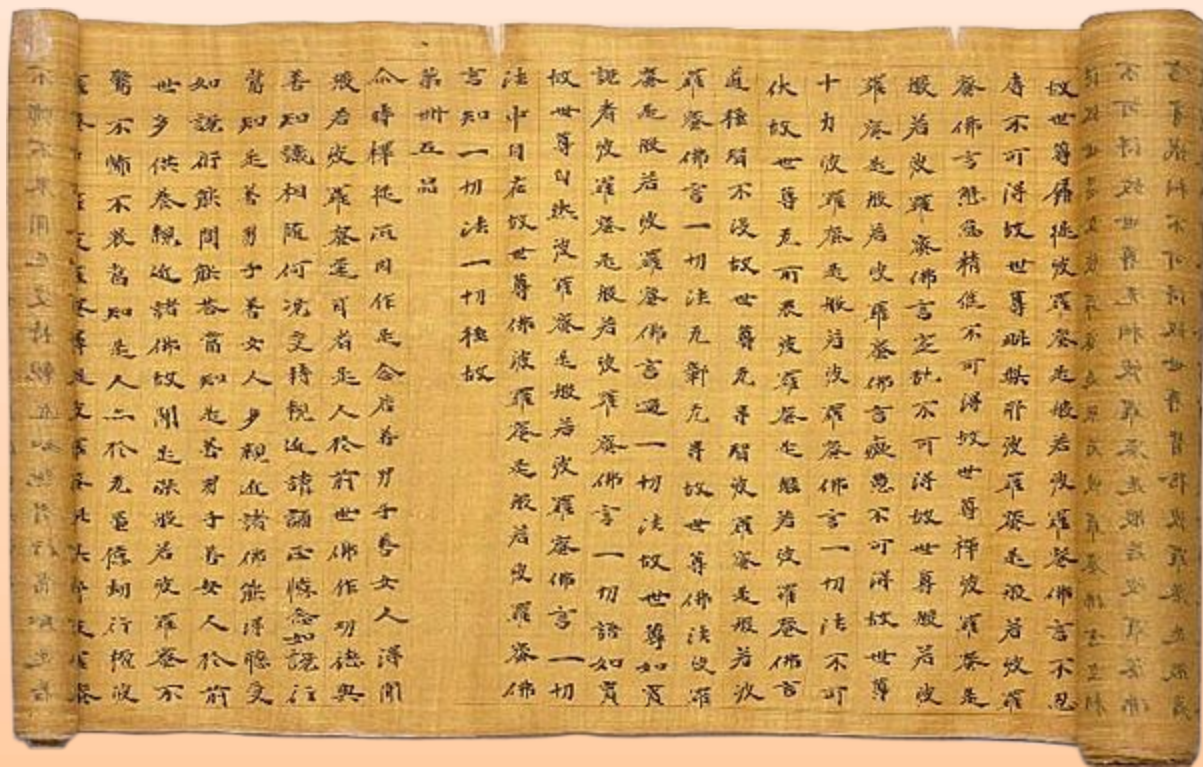 故世尊羼提波羅蜜是般若波羅蜜佛言不忍
辱不可得故世尊毗梨耶波羅蜜是般若波羅
蜜佛言懈怠精進不可得故世尊禪波羅蜜是
般若波羅蜜佛言定亂不可得故世尊般若波
羅蜜是般若波羅蜜佛言癡慧不可得故世尊
十力波羅蜜是般若波羅蜜佛言一切法不可
伏故世尊无所畏波羅蜜是般若波羅蜜佛言
道種智不没故世尊无㝵智波羅蜜是般若波
羅蜜佛言一切法无鄣无㝵故世尊佛法波羅
蜜是般若波羅蜜佛言過一切法故世尊如實
說者波羅蜜是般若波羅蜜佛言一切語如實
故世尊自然波羅蜜是般若波羅蜜佛言一切
法中自在故世尊佛波羅蜜是般若波羅蜜佛
言知一切法一切種故
第卌五品
尒時釋提洹因作是念若善男子善女人得聞
般若波羅蜜逕耳者是人於前世佛作功德與
善知識相隨何況受持親近讀誦正憶念如說行
當知是善男子善女人多親近諸佛能得聽受
如說行能問能荅當知是善男子善女人於前
世多供養親近諸佛故聞是深般若波羅蜜不
驚不怖不畏當知是人亦於无量億劫行檀波